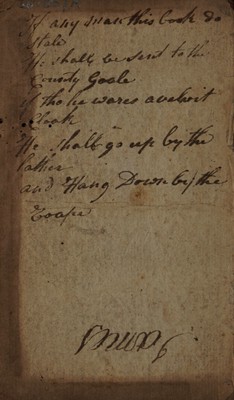 If any man this book do
stale
He shall be sent to the
County Goale
if tho he wares a velvit
Cloak
He shall go up by the
lather
and Hang Down by the
Roape